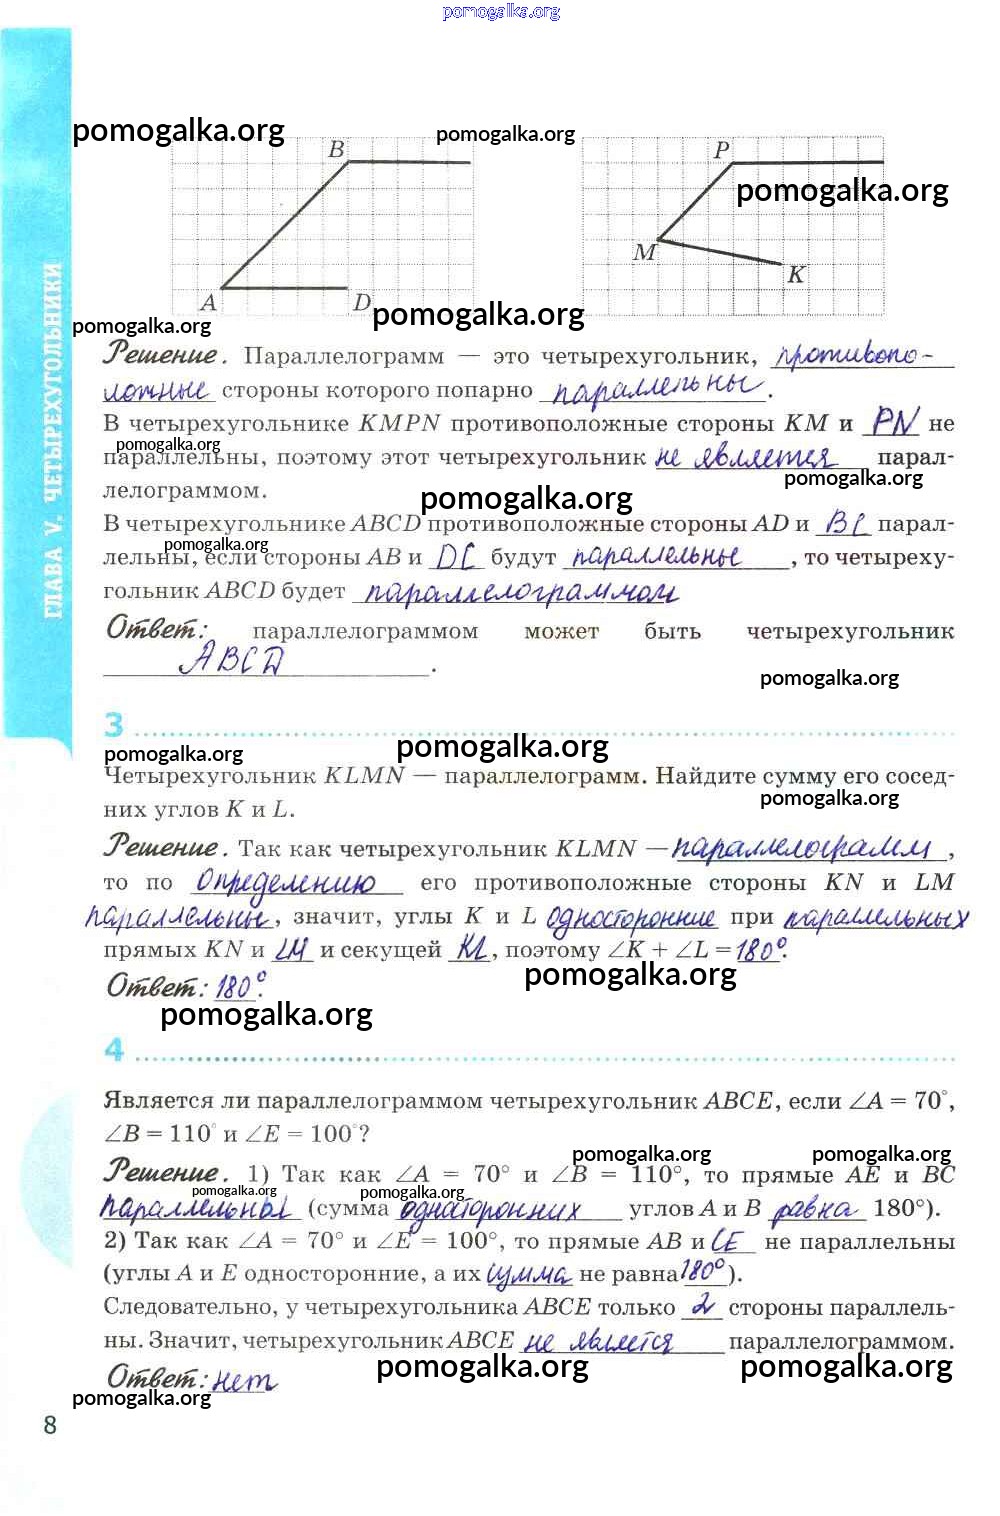 pomogalka.org
pomogalka.org
pomogalka.org
B
P
pomogalka.org
M
K
A
D
pomogalka.org
pomogalka.org
ГЛАВА V. ЧЕТЫРЕХУГОЛЬНИКИ
Решение. Параллелограмм — это четырехугольник, противопо-
ложные стороны которого попарно параллельны.
В четырехугольнике KMPN противоположные стороны KM и PN не
pomogalka.org
параллельны, поэтому этот четырехугольник не является парал-
pomogalka.org
лелограммом.
pomogalka.org
В четырехугольнике ABCD противоположные стороны AD и BC парал-
pomogalka.org
лельны, если стороны AB и DC будут параллельные, то четыреху-
гольник ABCD будет параллелограммом
Ответ: параллелограммом может быть четырехугольник
ABCD.
pomogalka.org
3
pomogalka.org
pomogalka.org
Четырехугольник KLMN — параллелограмм. Найдите сумму его сосед-
pomogalka.org
них углов K и L.
Решение. Так как четырехугольник KLMN — параллелограмм,
то по определению его противоположные стороны KN и LM
параллельны, значит, углы K и L односторонние при параллельных
прямых KN и LM и секущей KL, поэтому ∠K + ∠L = 180°.
pomogalka.org
Ответ: 180°.
pomogalka.org
4
Является ли параллелограммом четырехугольник ABCE, если ∠A = 70°,
∠B = 110° и ∠E = 100°?
pomogalka.org
pomogalka.org
Решение. 1) Так как ∠A = 70° и ∠B = 110°, то прямые AE и BC
pomogalka.org
pomogalka.org
параллельны (сумма односторонних углов A и B равна 180°).
2) Так как ∠A = 70° и ∠E = 100°, то прямые AB и CE не параллельны
(углы A и E односторонние, а их сумма не равна 180°).
Следовательно, у четырехугольника ABCE только 2 стороны параллель-
ны. Значит, четырехугольник ABCE не является параллелограммом.
pomogalka.org
pomogalka.org
Ответ: нет
pomogalka.org
8